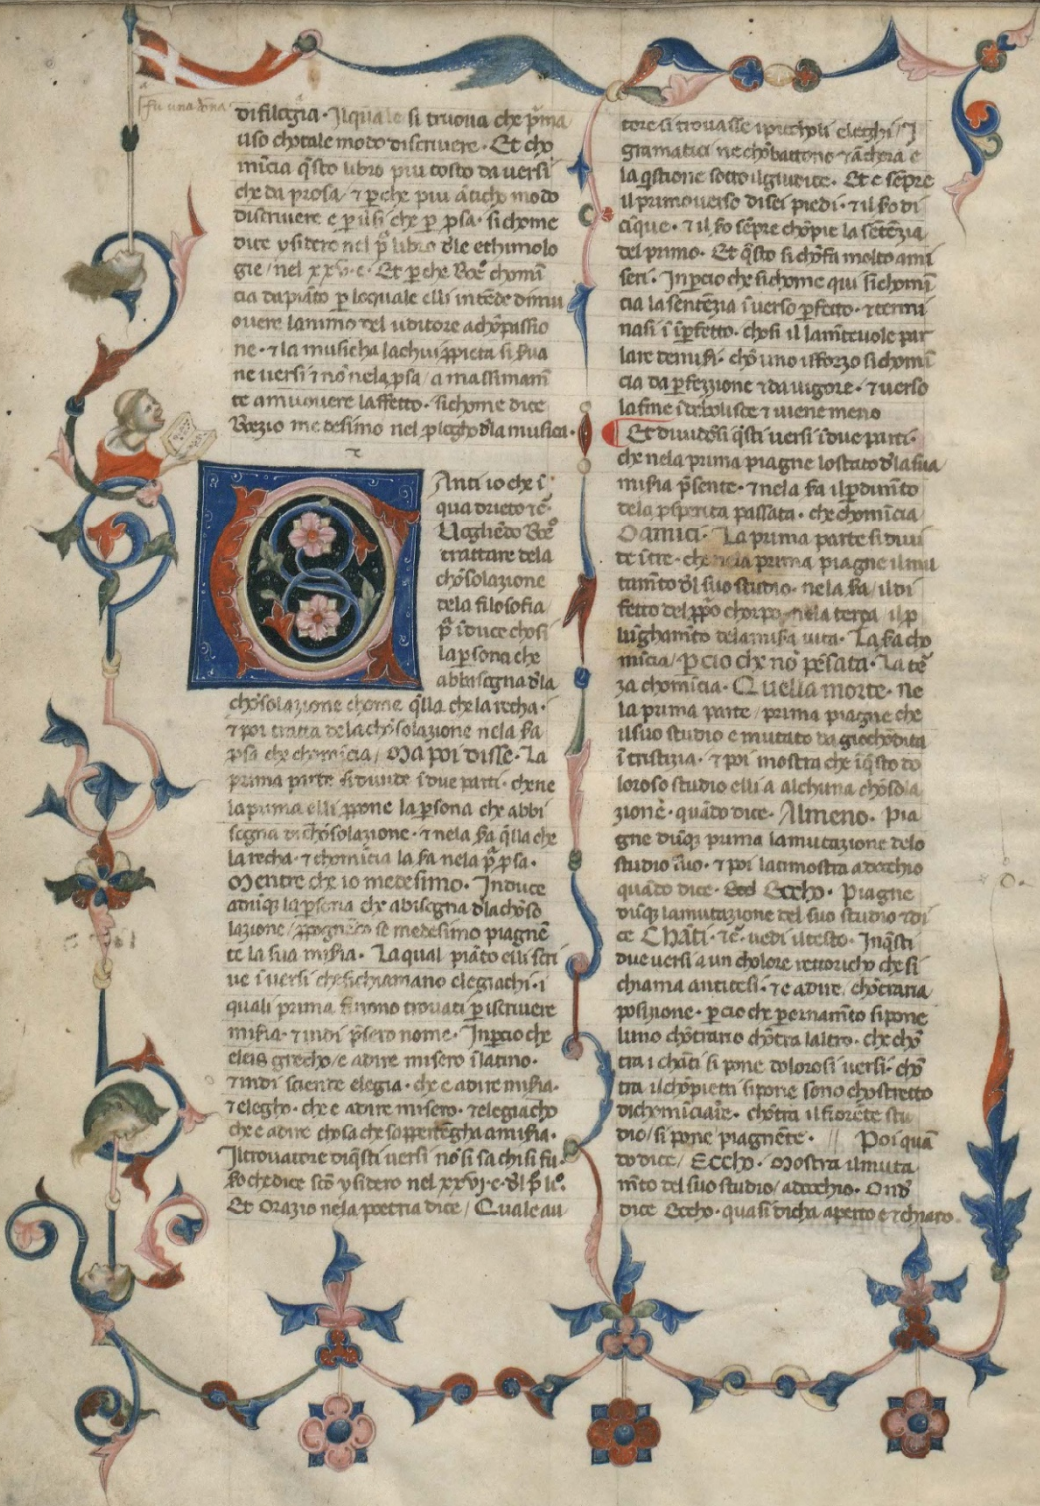 fu una
di filegia. Il quale si truova che p̄ma
uso chotale modo discrivere. Et cho
mīcia q̄sto libro piu tosto da versi
che da prosa. ⁊ p̱che piu ātich̄o modo
discrivere e p̱ v̱si che p̱ p̱sa. sichome
dice ysidero nel p̄ libro d̄le ethimolo
gie / nel xxvi. c. Et p̱che Boe᷎ chomī
cia da piāto p̱ loquale elli intēde dimu
overe lanimo del uditore a chōpassio
ne. ⁊ la musicha lachui p̱pieta si fua
ne versi ⁊ nō nela p̱sa / a massimam̄
te amuovere laffetto. sichome dice
Boezio medesimo nel p̱legho d̄la musica.
Anti io che ī
qua drieto ⁊c̄.
Veghēdo Boe᷎
trattare dela
chōsolazione
dela filosofia /
p̄ īduce chosi
la p̱sona che
abbisegna d̄la
chōsolazione chome q̄lla che la recha.
⁊ poi tratta de la chōsolazione nela ſa
p̱sa che chomīcia / Ma poi disse. La
prima parte si divide ī due parti. che ne
la prima elli p̱pone la p̱sona che abbi
segna di chōsolazione. ⁊ nela ſa q̄lla che
la recha. ⁊ chomīcia la ſa nela p̄ p̱sa.
Mentre che io medesimo. Induce
adūq̄ la p̱sona che abisegna d̄la chōso
lazione / p̱pognēdo se medesimo piagnē
te la sua mis̄ia. La qual piāto elli scri
ve ī versi che si chiamano elegiachi. i
quali prima furono trovati p̱ iscrivere
mis̄ia. ⁊ indi p̄sero nome. Inp̱cio che
eleis grecho / e a dire misero ī latino.
⁊ indi sciente elegia. che e a dire mis̄ia.
⁊ elegho. che e a dire misero. ⁊ elegiacho
che e a dire chosa che sappertēgha a mis̄ia.
Il trovatore diq̄sti versi nō si sa chi si fu.
ſo che dice sc̄o ysidero nel xxvi. c. d̄l p̄ li᷎.
Et Orazio nela poetria dice / Quale au
tore si trovasse i picholi eleghi / I
gramatici ne chōbattono ⁊ āchora e
la q̄stione sotto il giudice. Et e sēpre
il primo verso di sei piedi. ⁊ il ſo di
cīque. ⁊ il ſo sēpre chōpie la sētēzia
del primo. Et q̄sto si chōfa molto a mi
seri. Inp̱cio che sichome qui si chomī
cia la sentēzia ī verso p̱fetto. ⁊ termi
nasi ī īp̱fetto. chosi il lamētevole par
lare de mis̄i. chō uno isforzo si chomī
cia da p̱fezzione ⁊ da vigore. ⁊ verso
la fine īdebolisce ⁊ viene meno
Et dividōsi q̄sti versi ī due parti.
che nela prima piagne lo stato d̄la sua
mis̄ia p̄sente. ⁊ nela ſa il p̱dimēto
dela p̱sperita passata. che chomīcia
O amici. La prima parte si divi
de ī tre. che nela prima piagne il mu
tamēto d̄l suo studio. nela ſa / il di
fetto del p̱p̱o chorpo. nela terza il p̱
lūghamēto dela mis̄a vita. La ſa cho
mīcia / p̱cio che nō pēsata. La te᷎
za chomīcia. Quella morte. Ne
la prima parte / prima piagne che
il suo studio e mutato da giochōdita
ī tristizia. ⁊ poi mostra che ī q̄sto do
loroso studio elli a alchuna chōsola
zione. quādo dice. Almeno. Pia
gne dūq̄ prima la mutazione delo
studio suo. ⁊ poi lati mostra adocchio
quādo dice. Eccho. Piagne
dūq̄ la mutazione del suo studio ⁊ di
ce Chāti. ⁊c̄. vedi il testo. In q̄sti
due versi a un cholore rettoricho che si
chiama antitesi. ⁊ e a dire. chōtraria
posizione. p̱cio che p̱ ornamēto si pone
luno chōtrario chōtra laltro. che chō
tra i chāti si pone dolorosi versi. chō
tra il chōpietti si pone sono chostretto
di chomīciare. chōtra il fiorēte stu
dio / si pone piagnēte. // Poi quā
do dice / Eccho. Mostra il muta
mēto del suo studio / adocchio. Ond̄
dice Eccho. quasi dicha aperto e ⁊ chiaro.